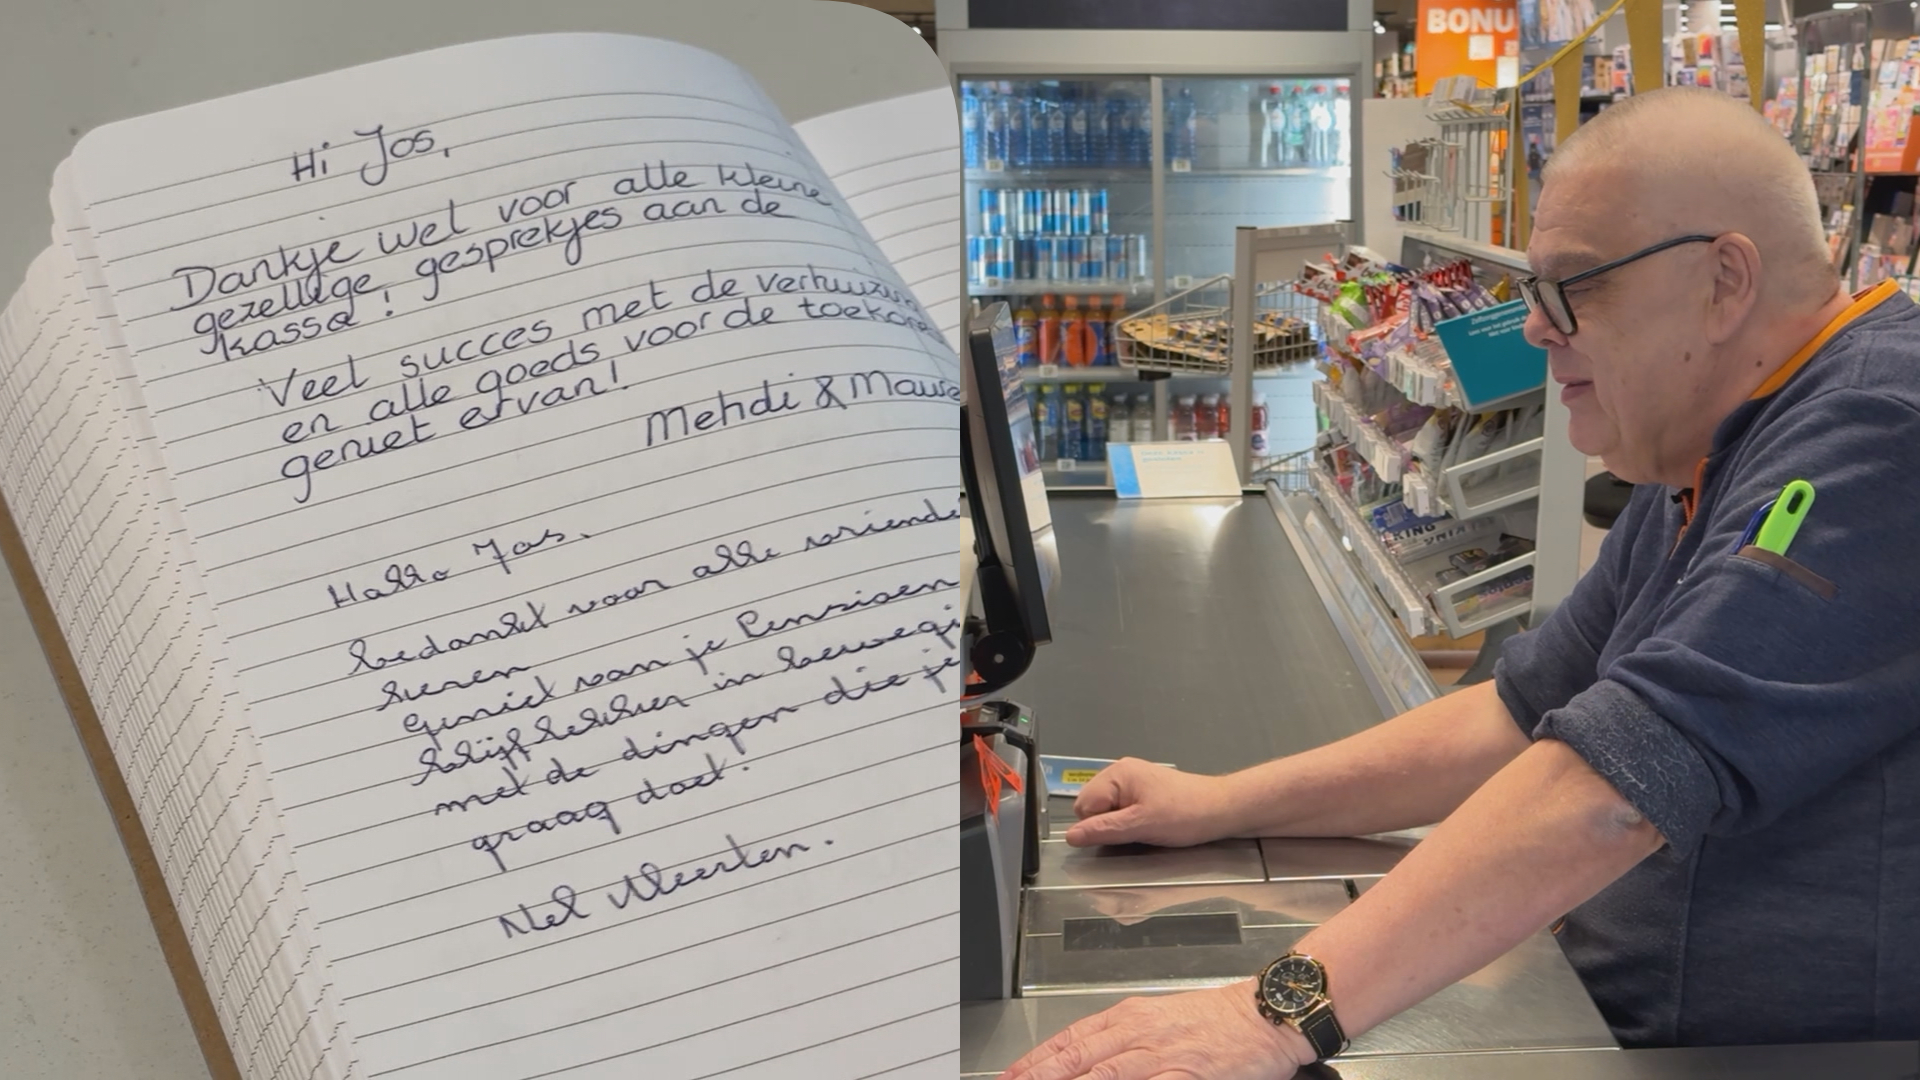 Hi Jos,
Dankje wel voor alle kleine
gezellige gesprekjes aan de
kassa!
Veel succes met de verhuizing
en alle goeds voor de
geniet ervan!
Mehdi &
Hallo Jos.
bedankt voor alle
Geniet van je Pensioen
blijf lekker in
met de dingen die je
graag doet.
Nel
BONU
KING